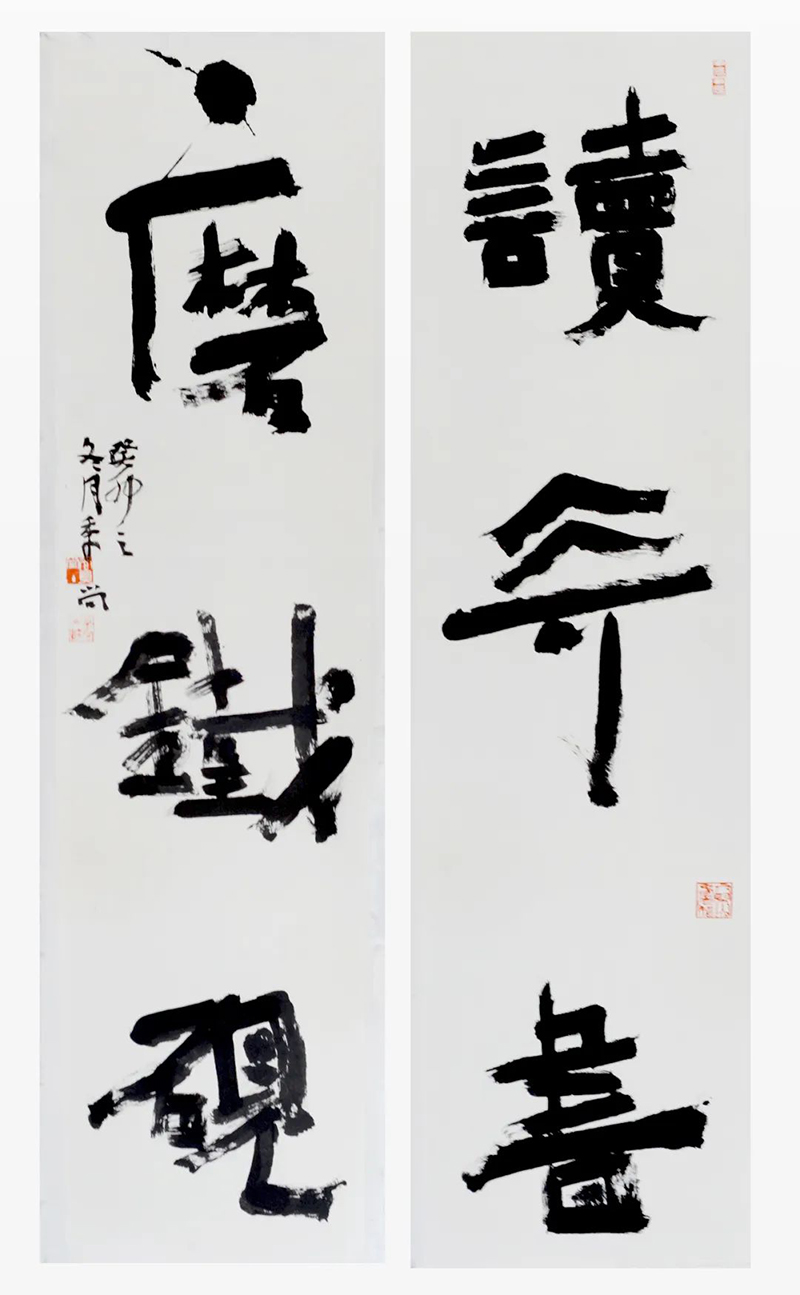 讀奇書
磨鐵硯
癸卯之
冬月